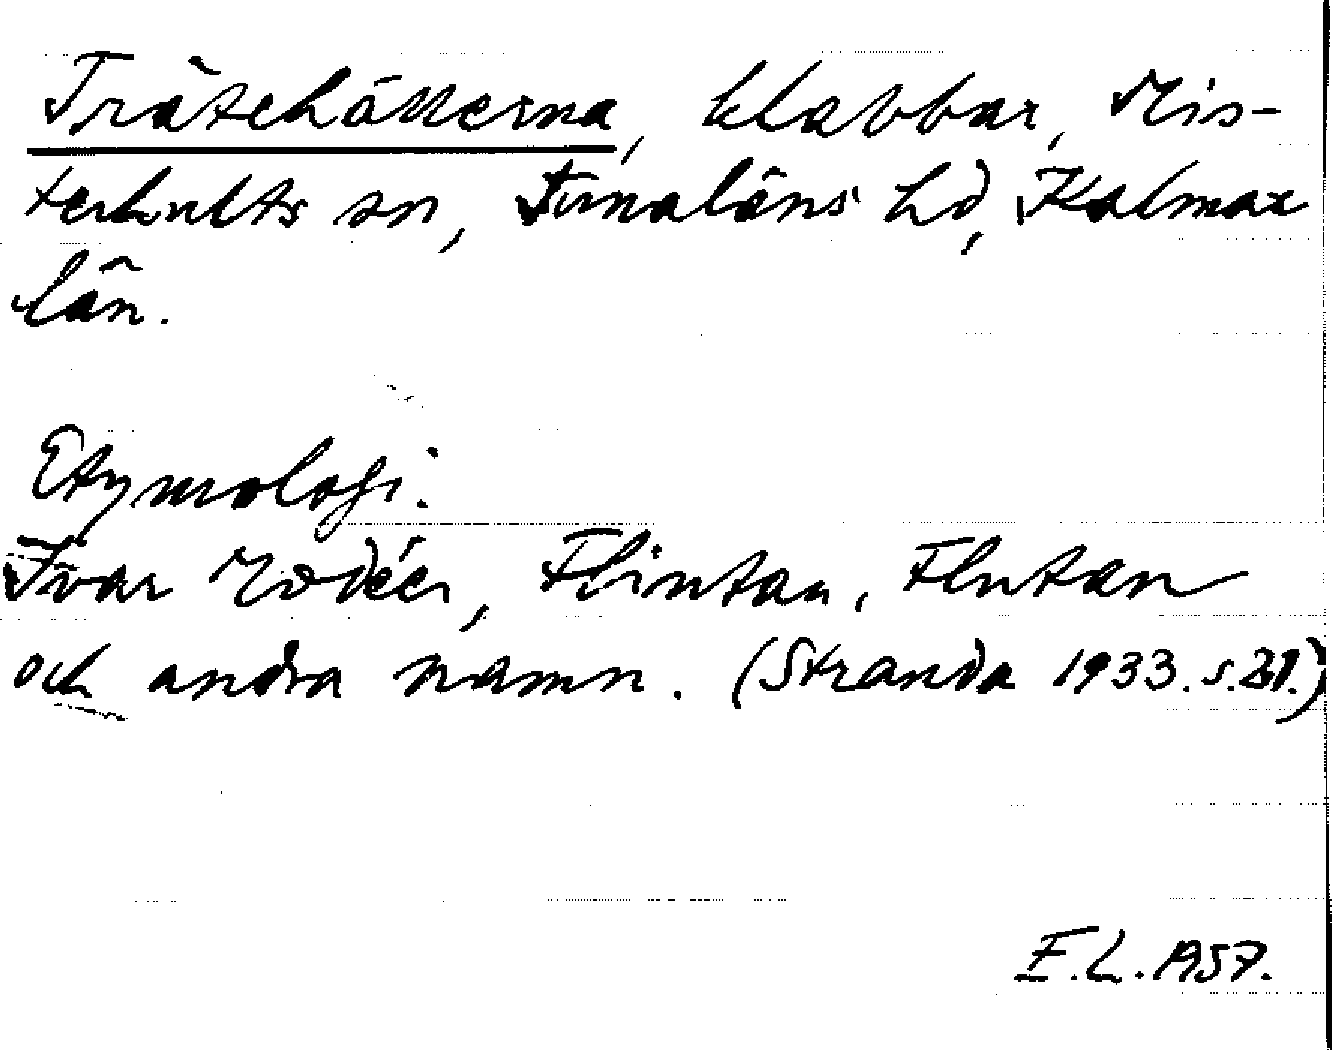 Trätehällerna, klabbar, Mis-
terhults sn, Tunaläns hd, Kalmar
län.
Etymologi.
Ivar Modéer, Flintan, Flutan
och andra namn. (Stranda 1933. s. 21.)
E.L. 1957.